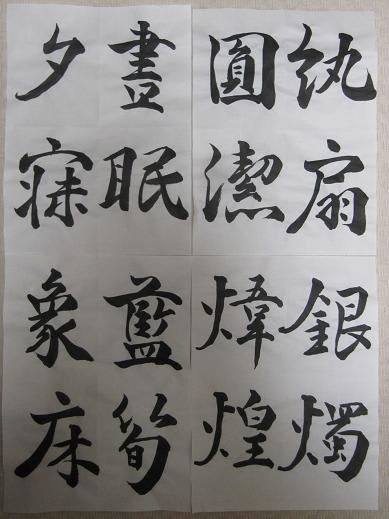 紈扇
圓潔
銀燭
煒煌
晝眠
夕寐
藍筍
象床